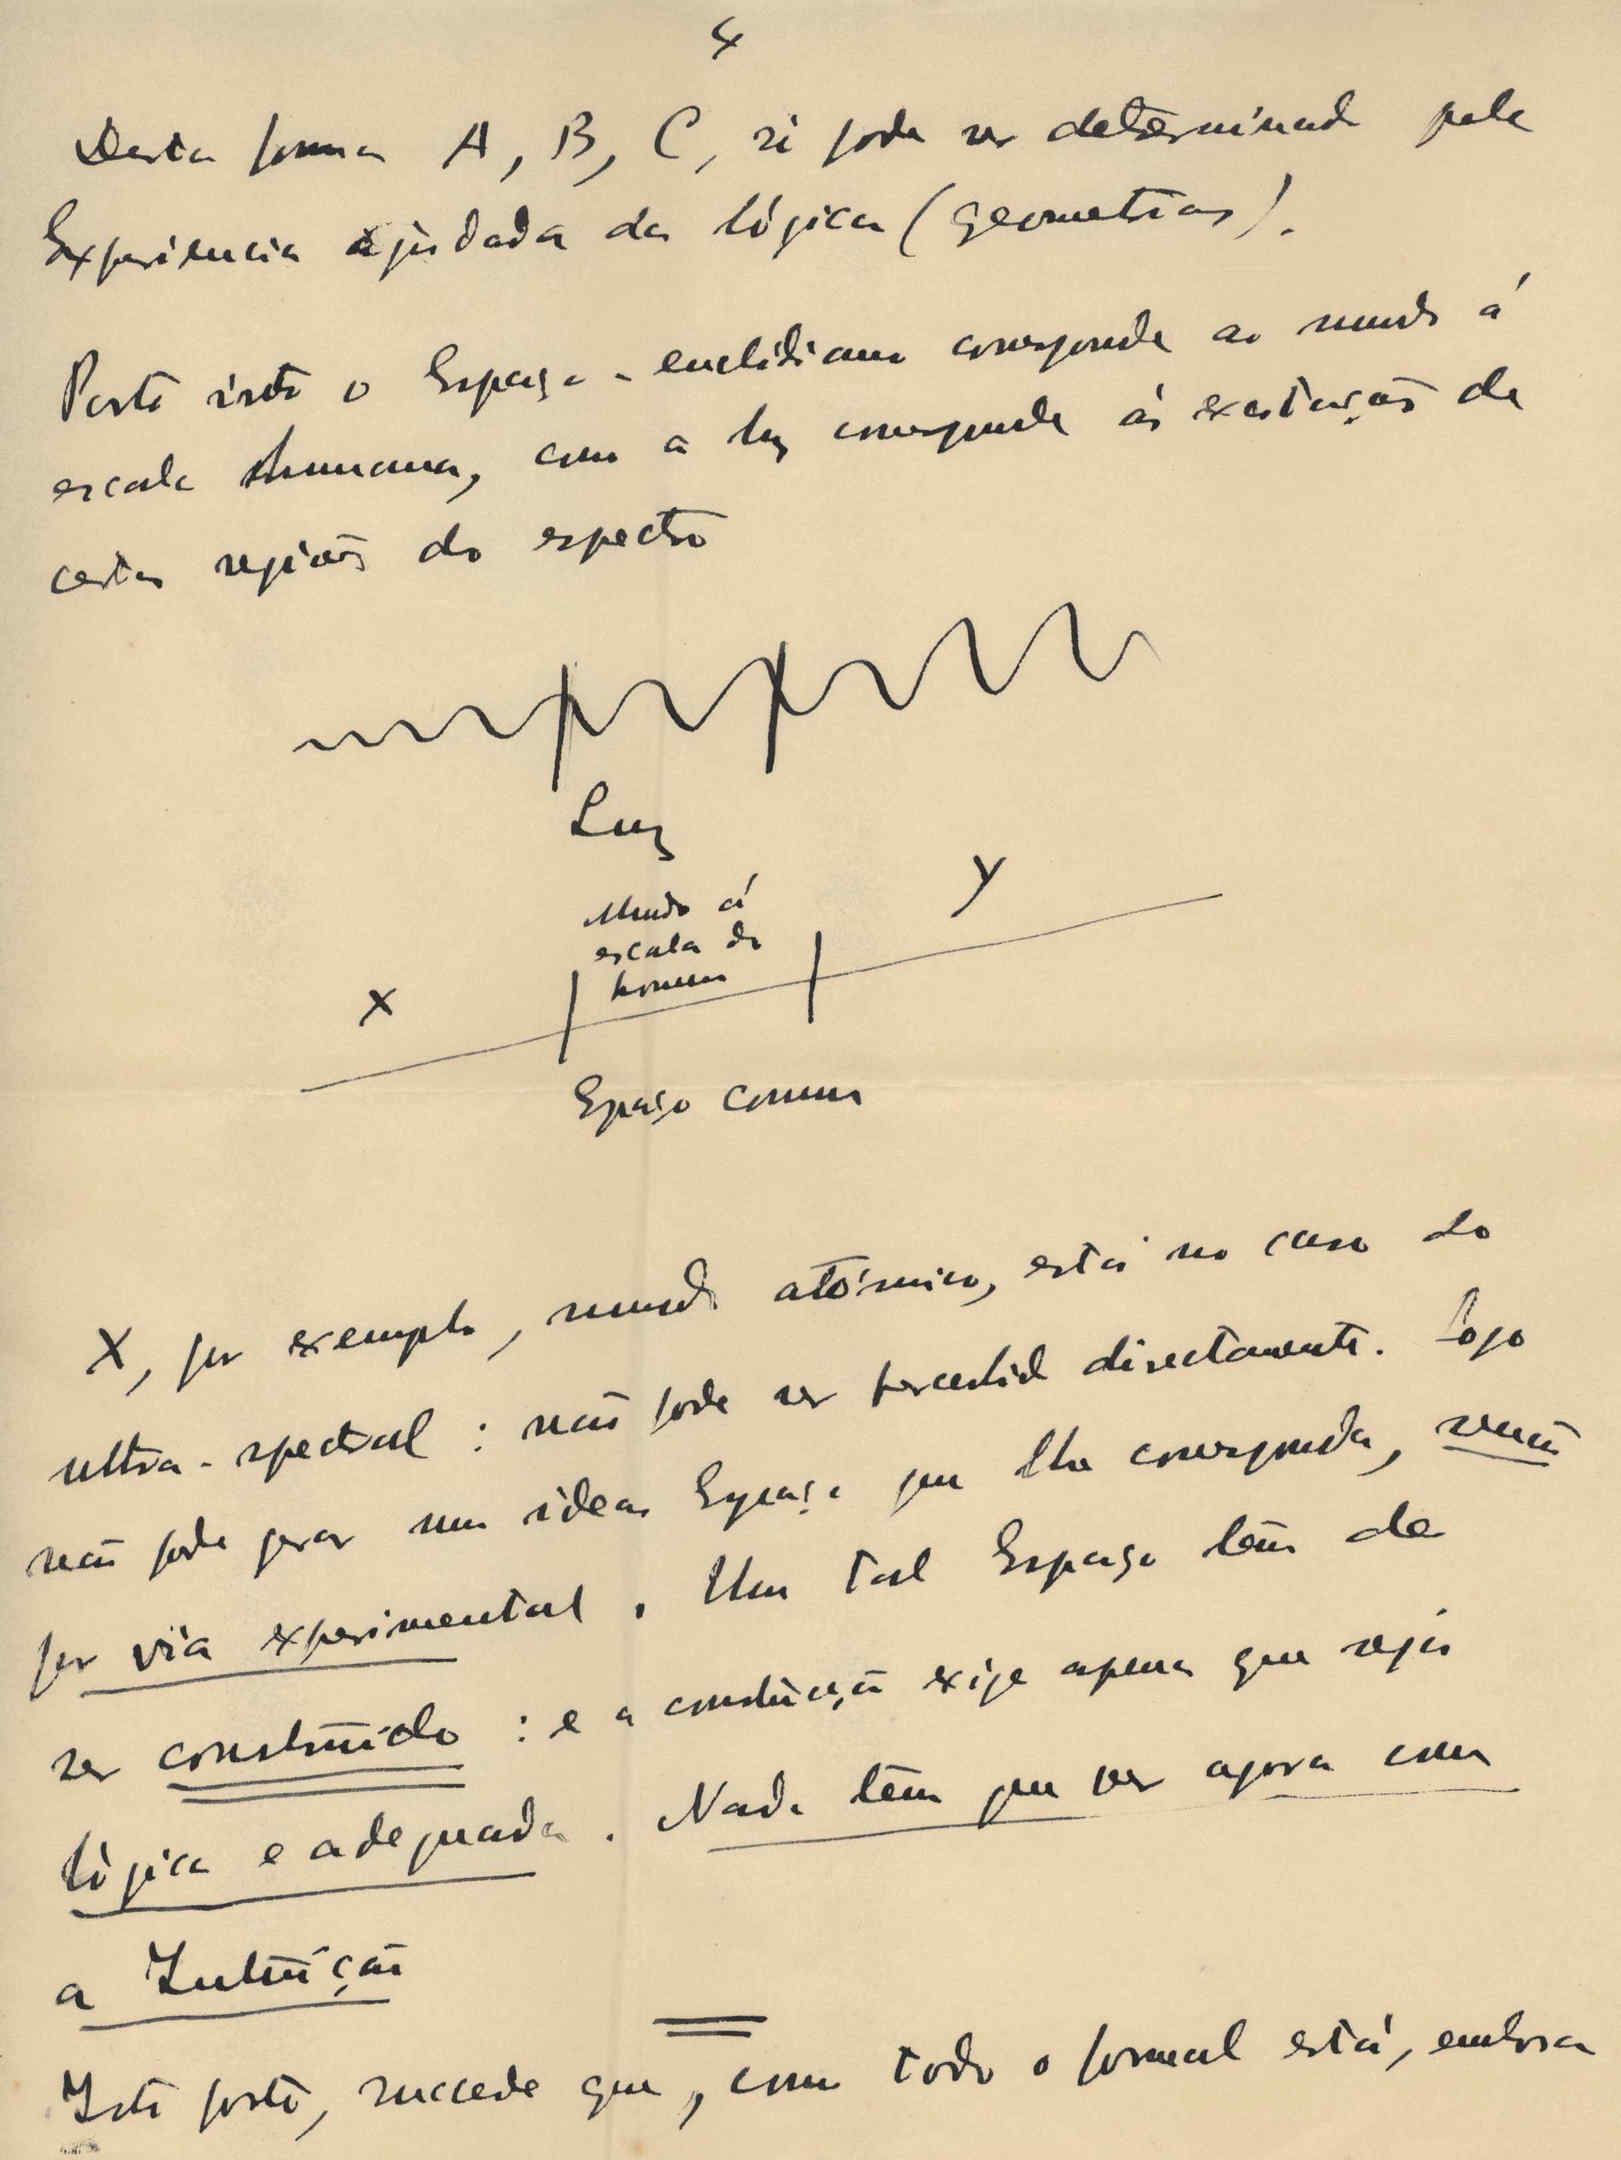 4
Desta forma A, B, C, só pode ser determinado pela
Experiencia ajudada da lógica (geometrias).
Posto isto o Espaço-euclidiano corresponde ao mundo á
escala humana, como a luz corresponde ás excitações de
certas regiões do espectro
Luz
Mundo á
escala do
homem
X
Y
Espaço comum
X, por exemplo, mundo atómico, está no caso do
ultra-spectral : não pode ser percebido directamente. Logo
não pode gerar uma ideia Espaço que lhe corresponda, senão
por via experimental. Um tal Espaço têm de
ser construído : e a construção exige apenas que seja
lógica e adequada. Nada têm que ver agora com
a Intuíção
Isto posto, succede que, como todo o formal está, embora